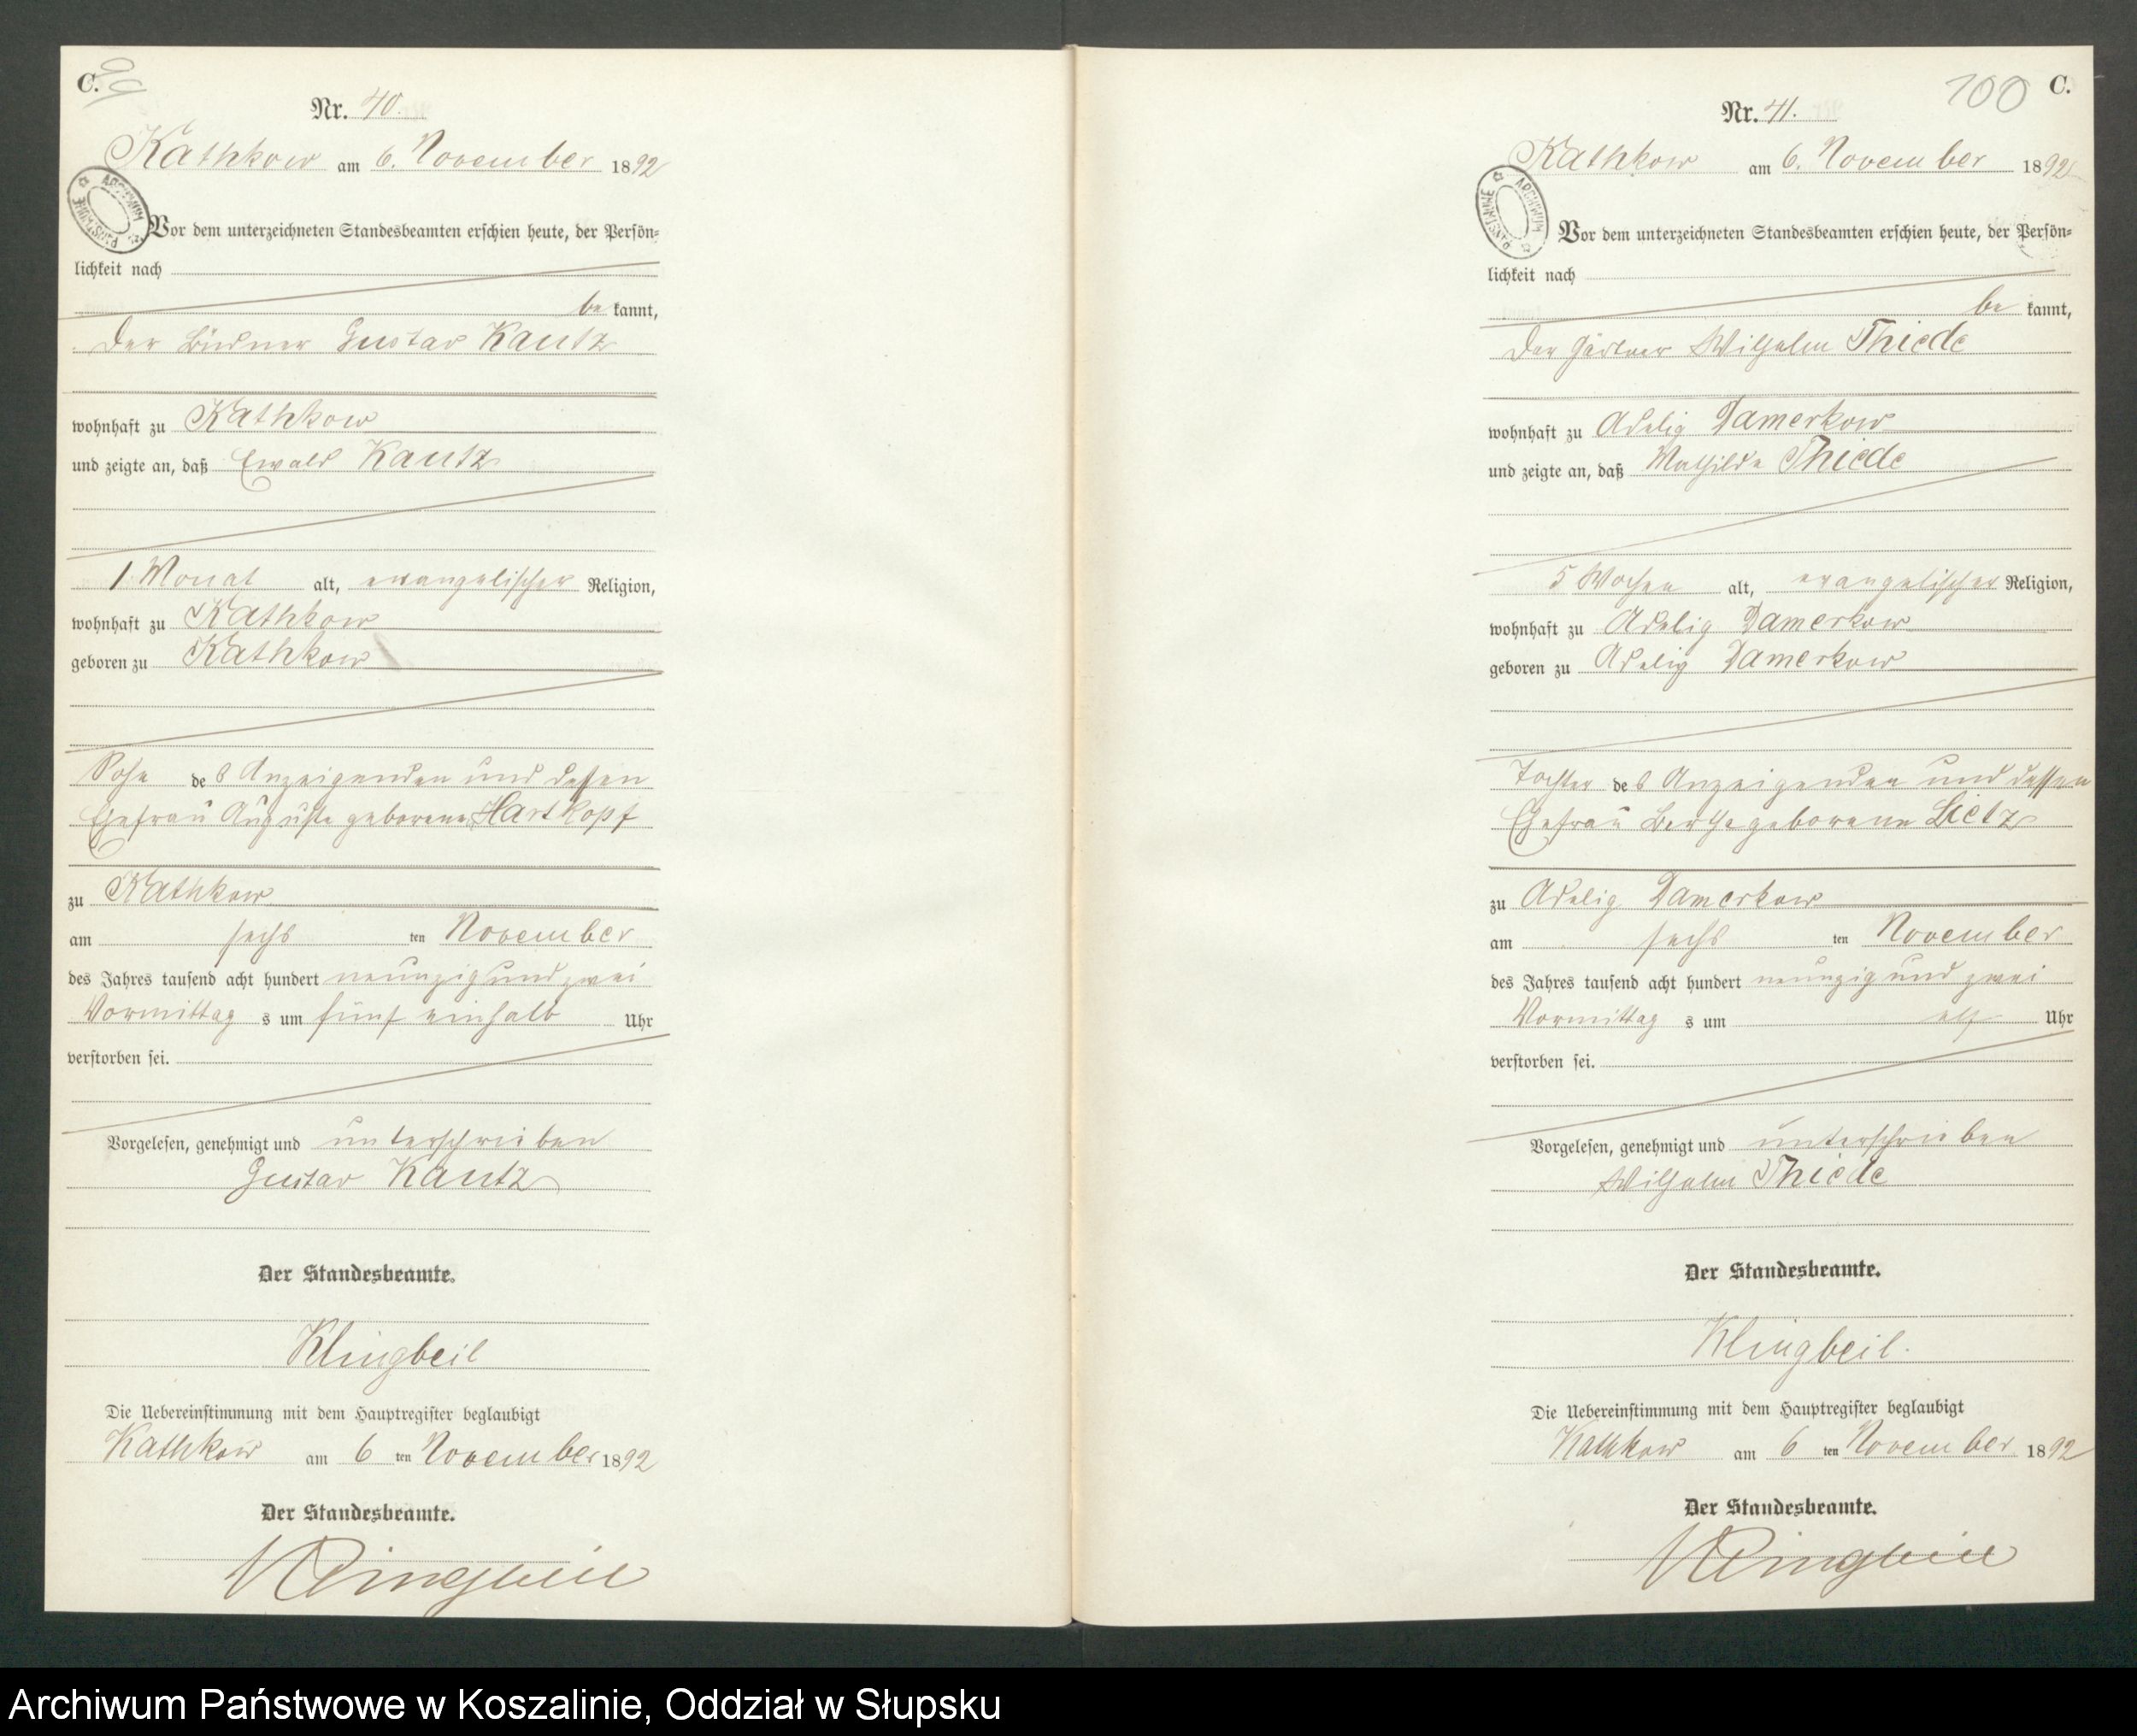 C.
99
Nr. 40.
Kathkow am 6. November 1892
Vor dem unterzeichneten Standesbeamten erschien heute, der Persön=
lichkeit nach
be kannt,
der Büdner Gustav Kautz
wohnhaft zu Kathkow
und zeigte an, daß Ewald Kautz
1 Monat alt, evangelischer Religion,
wohnhaft zu Kathkow
geboren zu Kathkow
Sohn des Anzeigenden und dessen
Ehefrau Auguste geborene Hartkopf
zu Kathkow
am sechs ten November
des Jahres tausend acht hundert neunzig und zwei
Vormittag s um fünf einhalb Uhr
verstorben sei.
Vorgelesen, genehmigt und unterschrieben
Gustav Kautz
Der Standesbeamte.
Klingbeil
Die Uebereinstimmung mit dem Hauptregister beglaubigt
Kathkow am 6 ten November 1892
Der Standesbeamte.
Klingbeil
100 C.
Nr. 41.
Kathkow am 6. November 1892
Vor dem unterzeichneten Standesbeamten erschien heute, der Persön=
lichkeit nach
be kannt,
der Gärtner Wilhelm Thiede
wohnhaft zu Adelig Damerkow
und zeigte an, daß Mathilde Thiede
5 Wochen alt, evangelischer Religion,
wohnhaft zu Adelig Damerkow
geboren zu Adelig Damerkow
Tochter des Anzeigenden und dessen
Ehefrau Berthe geborene Lietz
zu Adelig Damerkow
am sechs ten November
des Jahres tausend acht hundert neunzig und zwei
Vormittag s um elf Uhr
verstorben sei.
Vorgelesen, genehmigt und unterschrieben
Wilhelm Thiede
Der Standesbeamte.
Klingbeil.
Die Uebereinstimmung mit dem Hauptregister beglaubigt
Kathkow am 6 ten November 1892
Der Standesbeamte.
Klingbeil
Archiwum Państwowe w Koszalinie, Oddział w Słupsku